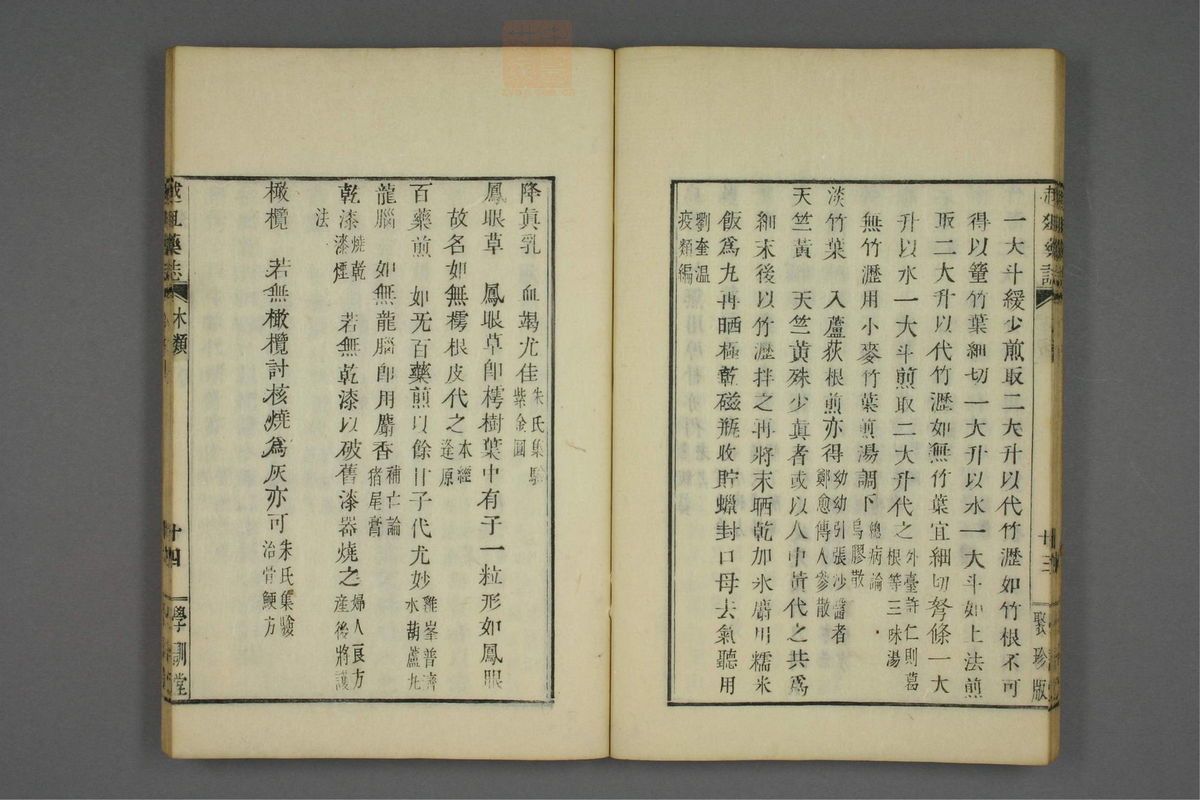 一大斗緩少煎取二大升以代竹瀝如竹根不可
得以篁竹葉細切一大升以水一大斗如上法煎
取二大升以代竹瀝如無竹葉宜細切弩條一大
升以水一大斗煎取二大升代之外臺許仁則葛根等三味湯
無竹瀝用小麥竹葉煎湯調下總病論烏膠散
淡竹葉 入蘆荻根煎亦得幼幼引張沙醫者鄭愈傳人參散
天竺黃 天竺黃殊少真者或以人中黃代之共爲
細末後以竹瀝拌之再將末晒乾加氷麝用糯米
飯爲九再晒極乾磁瓶收貯蠟封口毋去氣聽用
劉奎温疫類編
廿三
聚珍版
降眞乳 血竭尤佳朱氏集驗紫金圓
鳳眼草 鳳眼草卽樗樹葉中有子一粒形如鳳眼
故名如無樗根皮代之本經逢原
百藥煎 如无百藥煎以餘甘子代尤妙雞峯普濟水葫蘆九
龍腦 如無龍腦卽用麝香補亡論猪尾膏
乾漆燒乾漆煙法 若無乾漆以破舊漆器燒之婦人良方產後將護
橄欖 若無橄欖討核燒爲灰亦可朱氏集驗治骨鯁方
藥誌
木類
十四
學訓堂